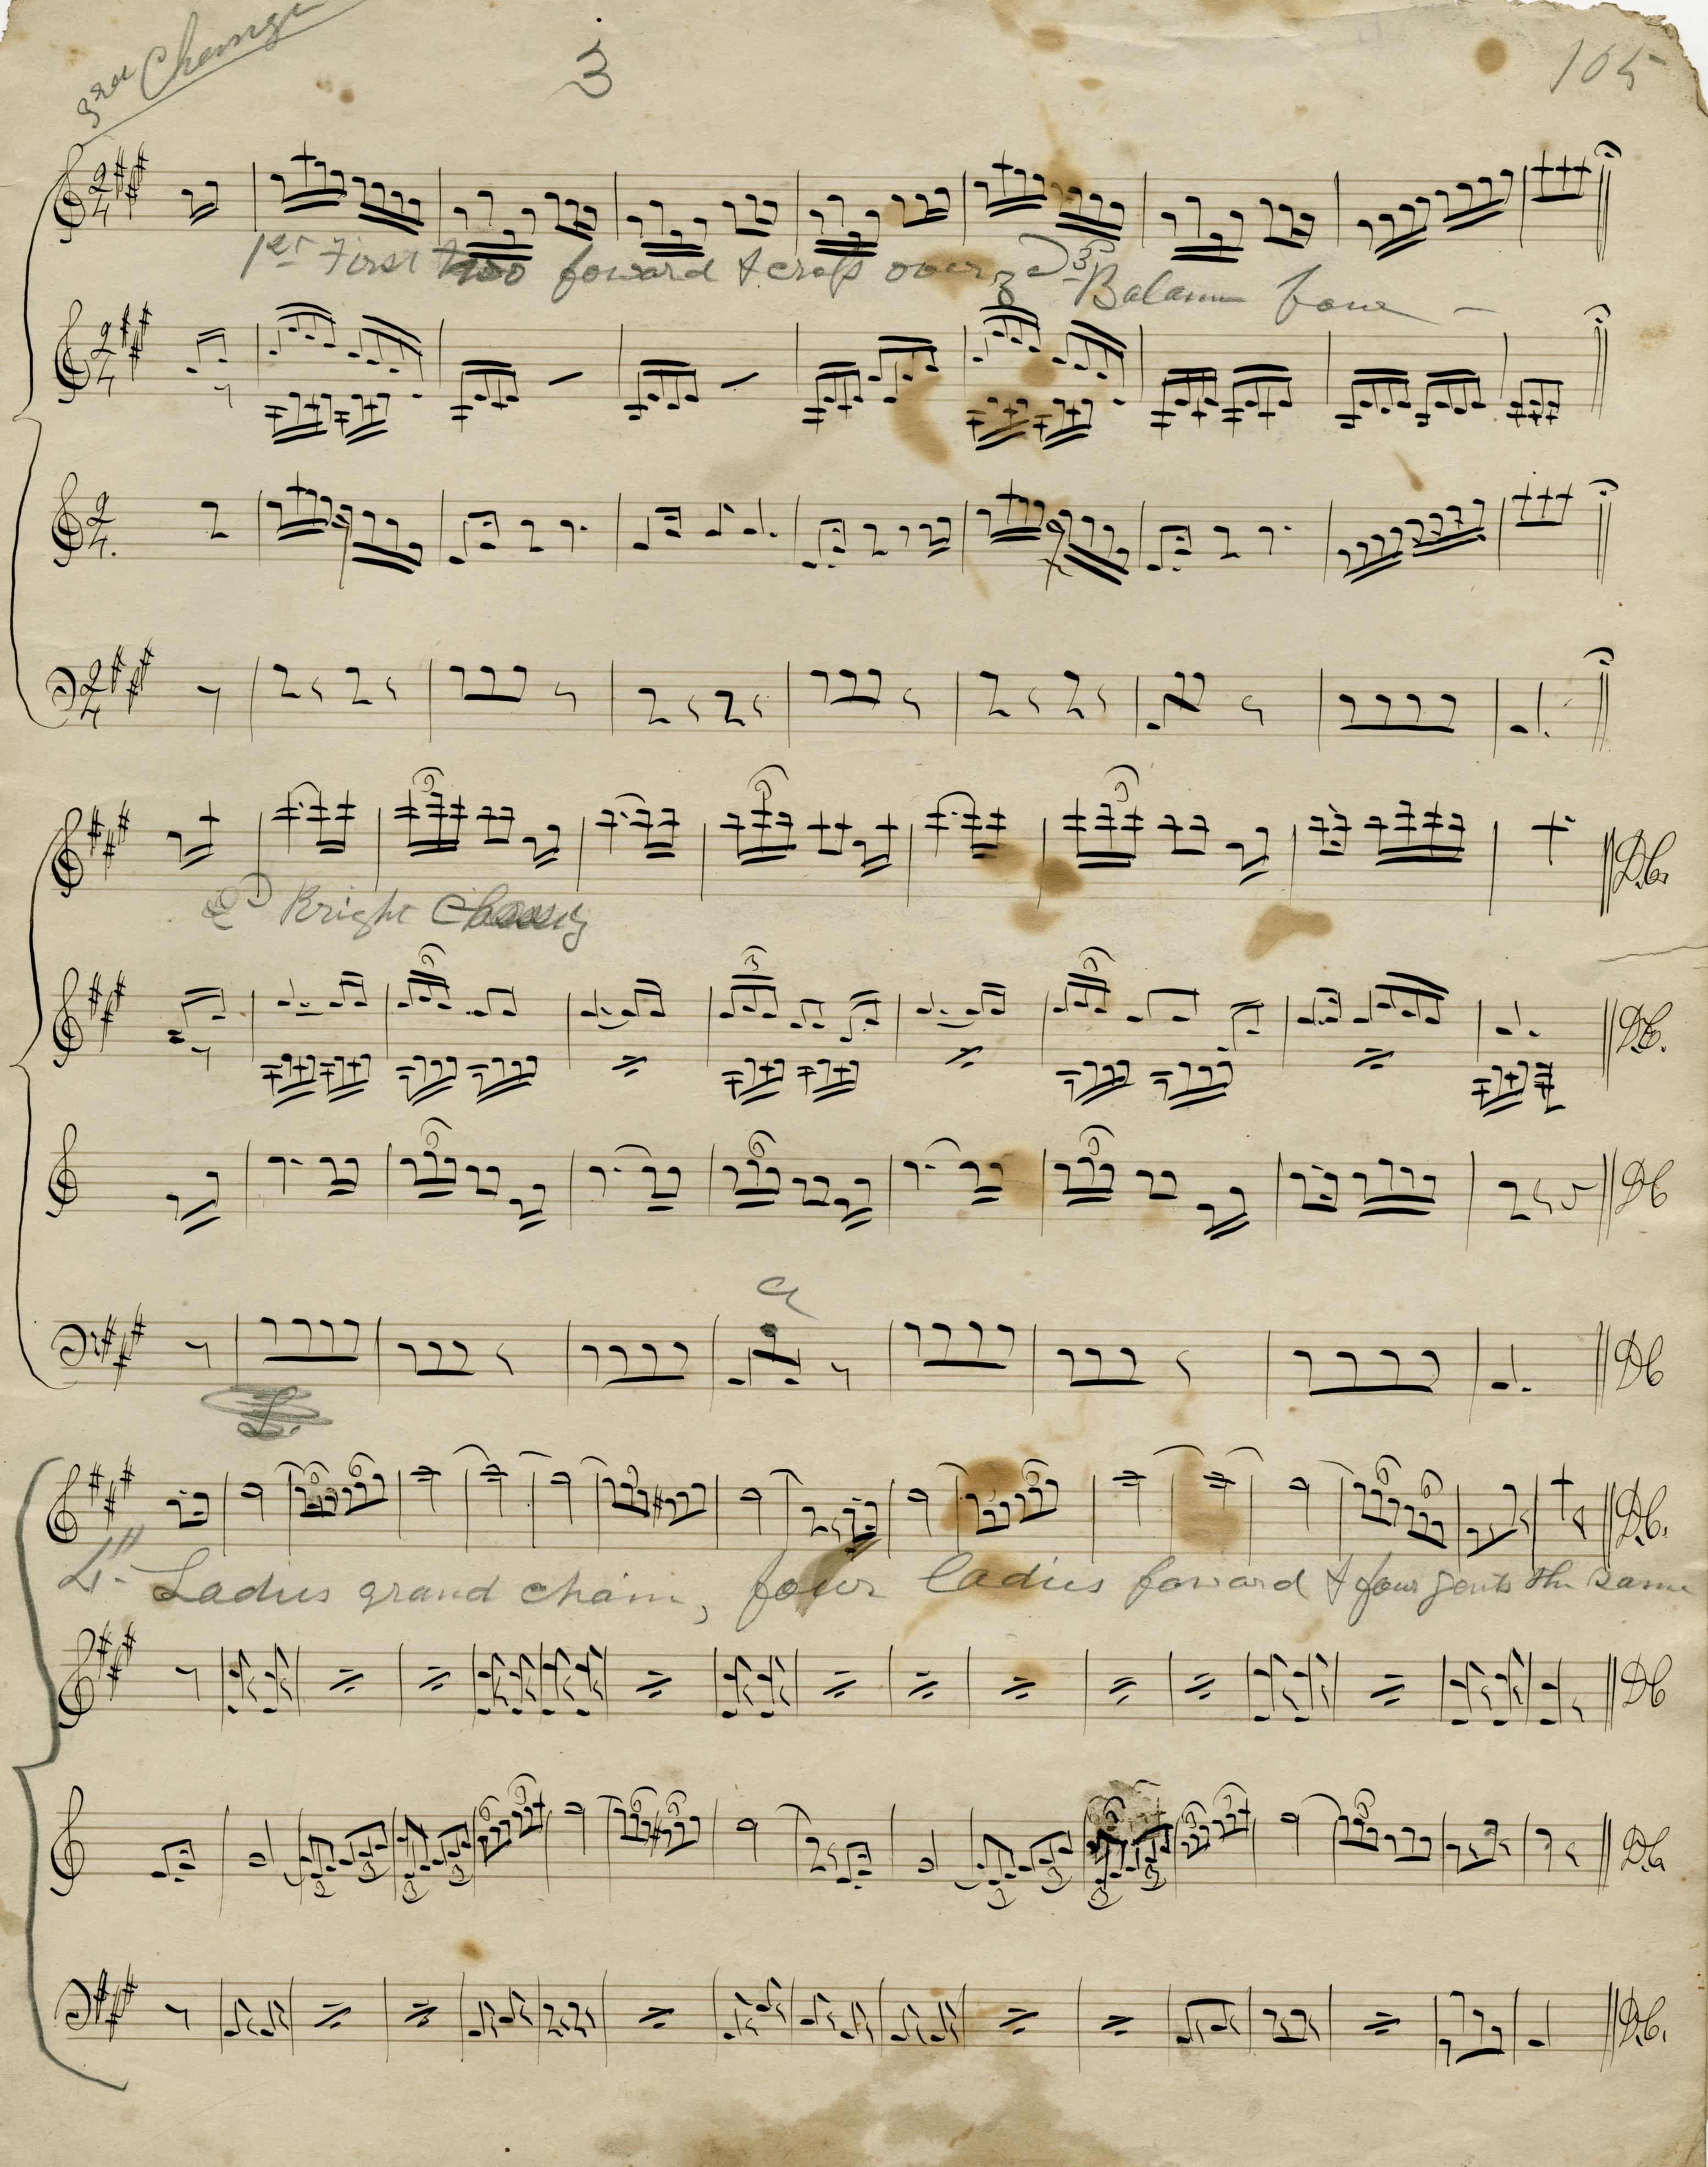 3rd Change
3
105
1st First two foward & cross over 3
Balance four
2D Right
D.C.
D.C.
DC
DC
4th Ladies grand chain, four ladies foward & four gents the same
D.C.
DC
D.C.
D.C.